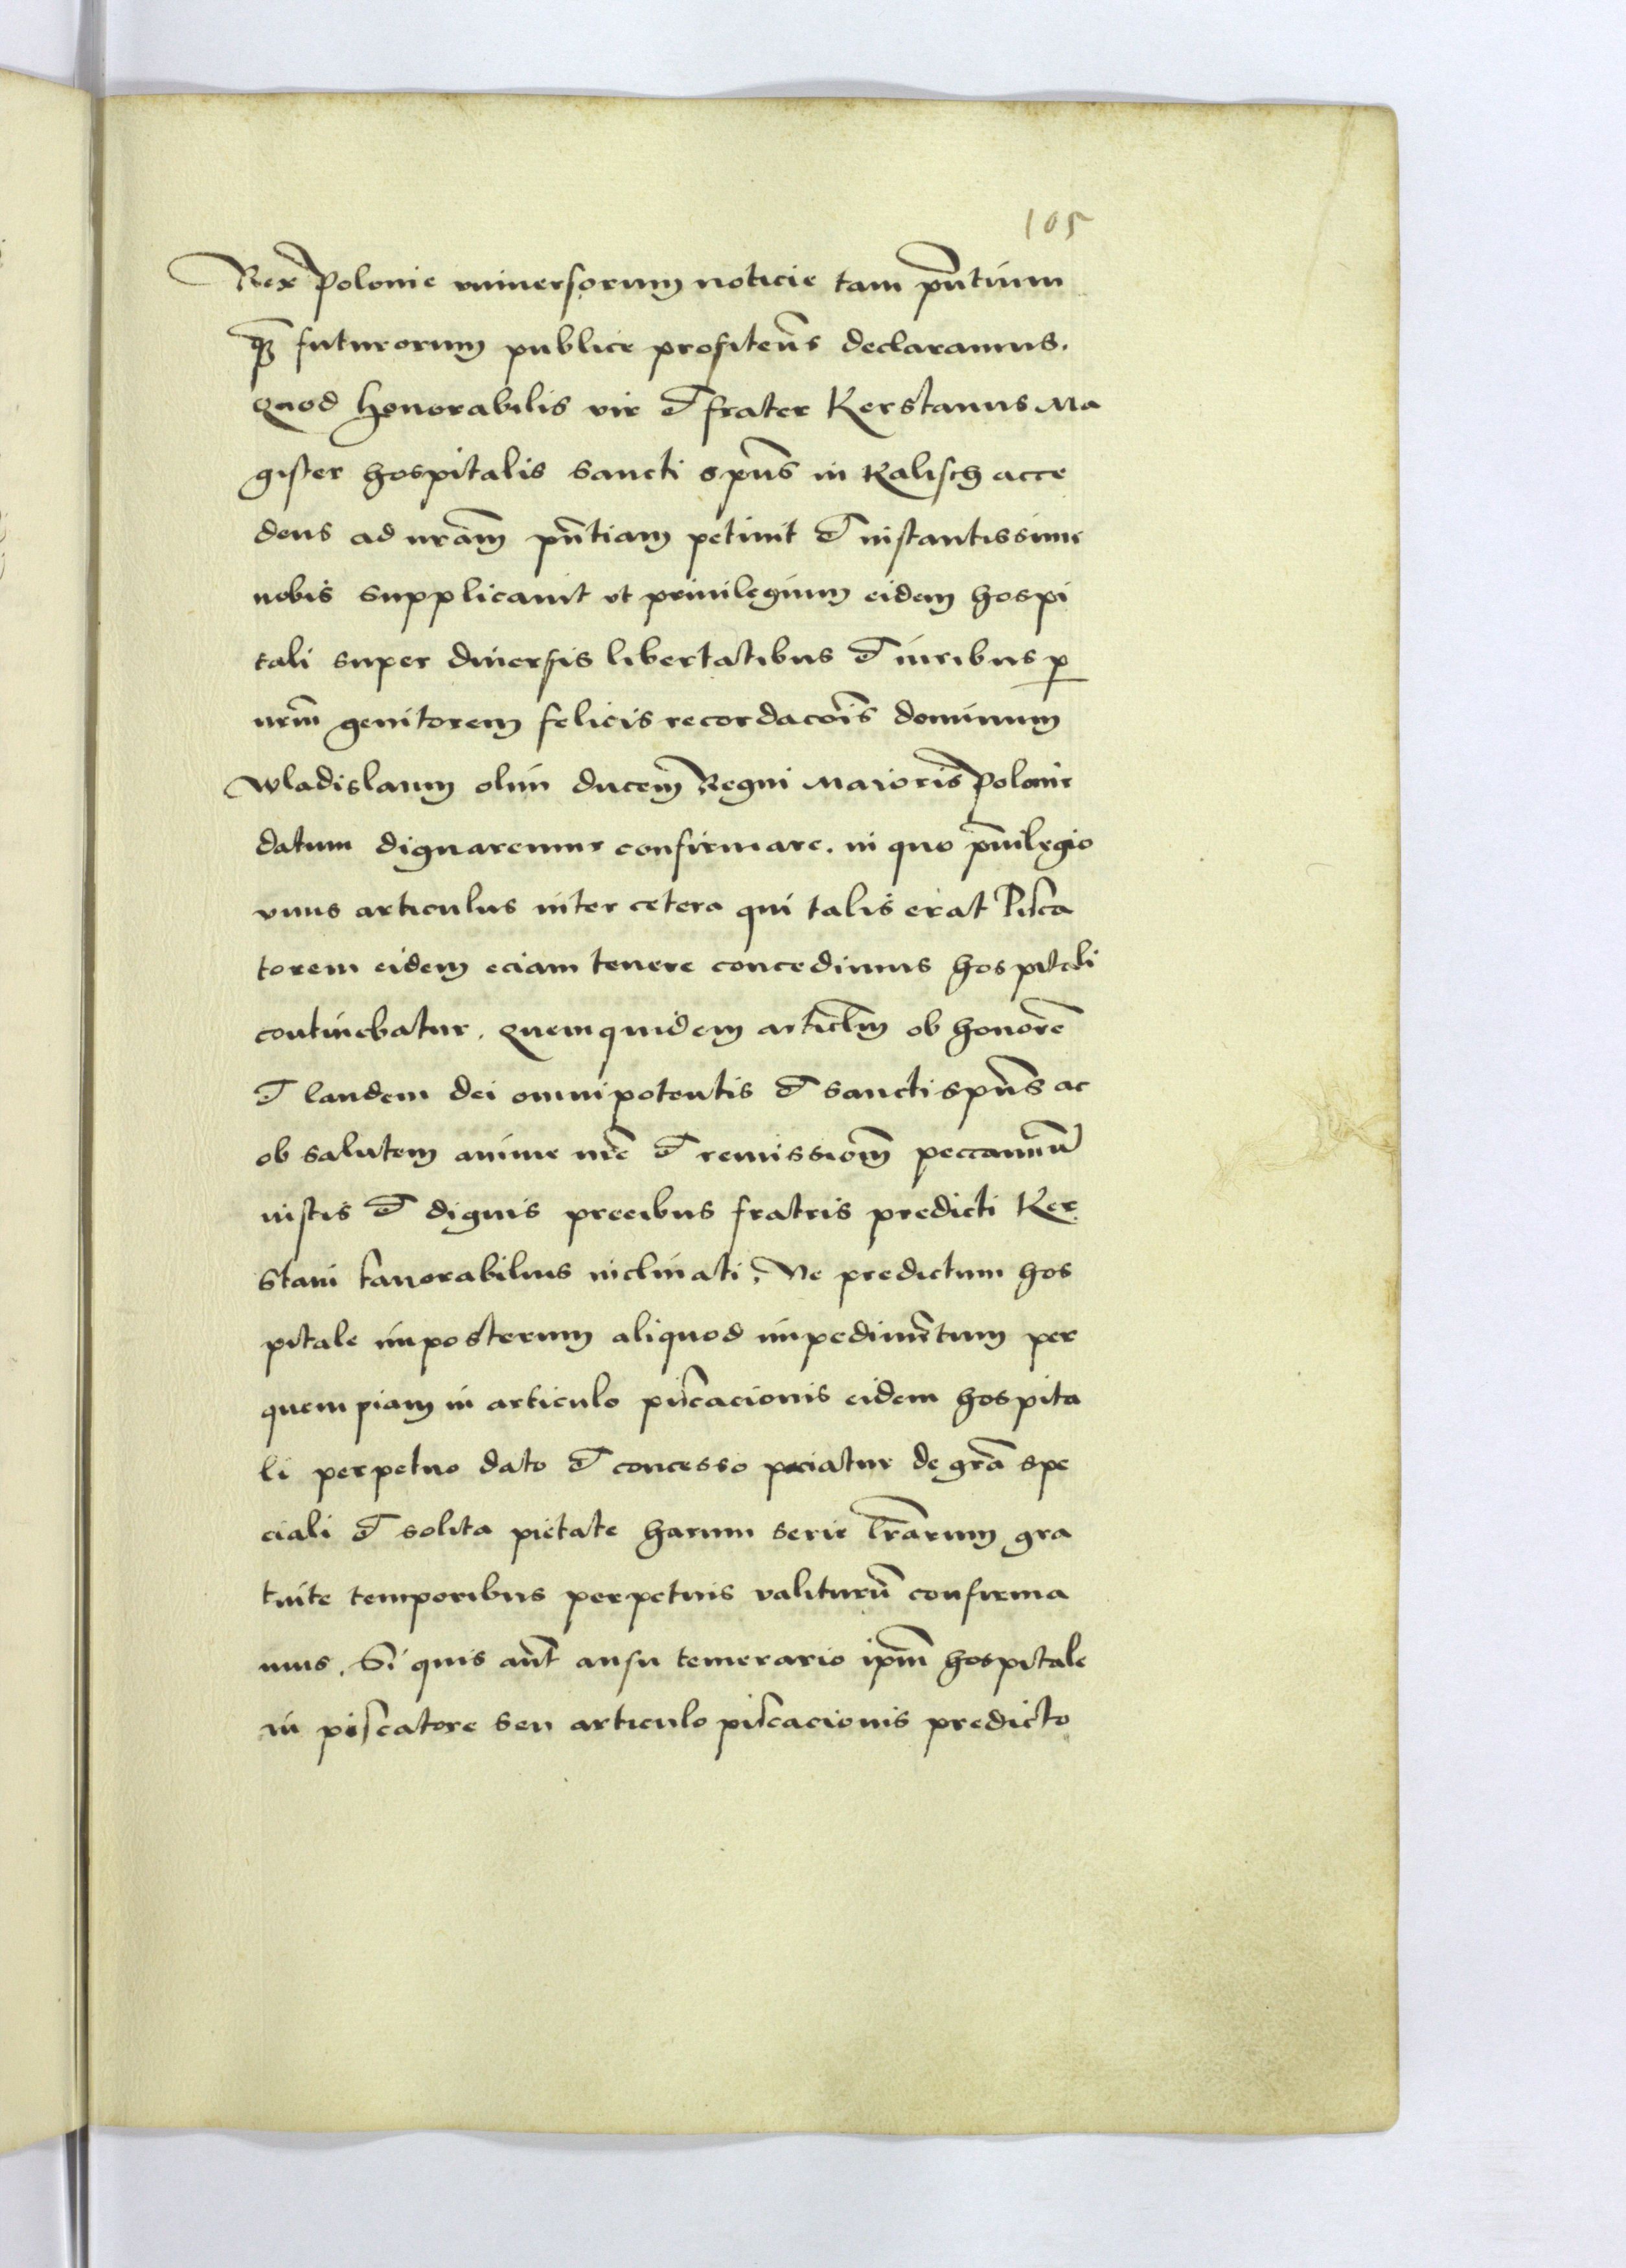 105
Rex Polonie vniuersorum noticie tam pn̄tium
qȝ̄ futurorum publice profiten̄s declaramus.
Quod honorabilis vir et frater Kerstanus Ma
gister hospitalis sancti spūs in Kalisch acce
dens ad nrām pn̄tiam petiuit et instantissime
nobis supplicauit vt priuilegium eidem hospi
tali super diuersis libertatibus et iuribus ꝑ
nrm̄ genitorem felicis recordacōis dominum
Wladislaum olim ducem Regni Maioris Polonie
datum dignaremur confirmare. in quo pͥuilegio
vnus articulus inter cetera qui talis erat Pisca
torem eidem eciam tenere concedimus hospitali
continebatur. Quemquidem articlm̄ ob honorē
et laudem dei omnipotentis et sancti spūs ac
ob salutem anime nr̄e et remissiōm peccaminū
iustis et dignis precibus fratris predicti Ker
stani fauorabilius inclinati, Ne predictum hos
pitale imposterum aliquod impedimētum per
quempiam in articulo piscacionis eidem hospita
li perpetuo dato et concesso paciatur de grā spe
ciali et solita pietate harum serie lrārum gra
tuite temporibus perpetuis valiturū confirma
mus. Si quis aūt ausu temerario ipm̄ hospitale
in piscatore seu articulo piscacionis predicto